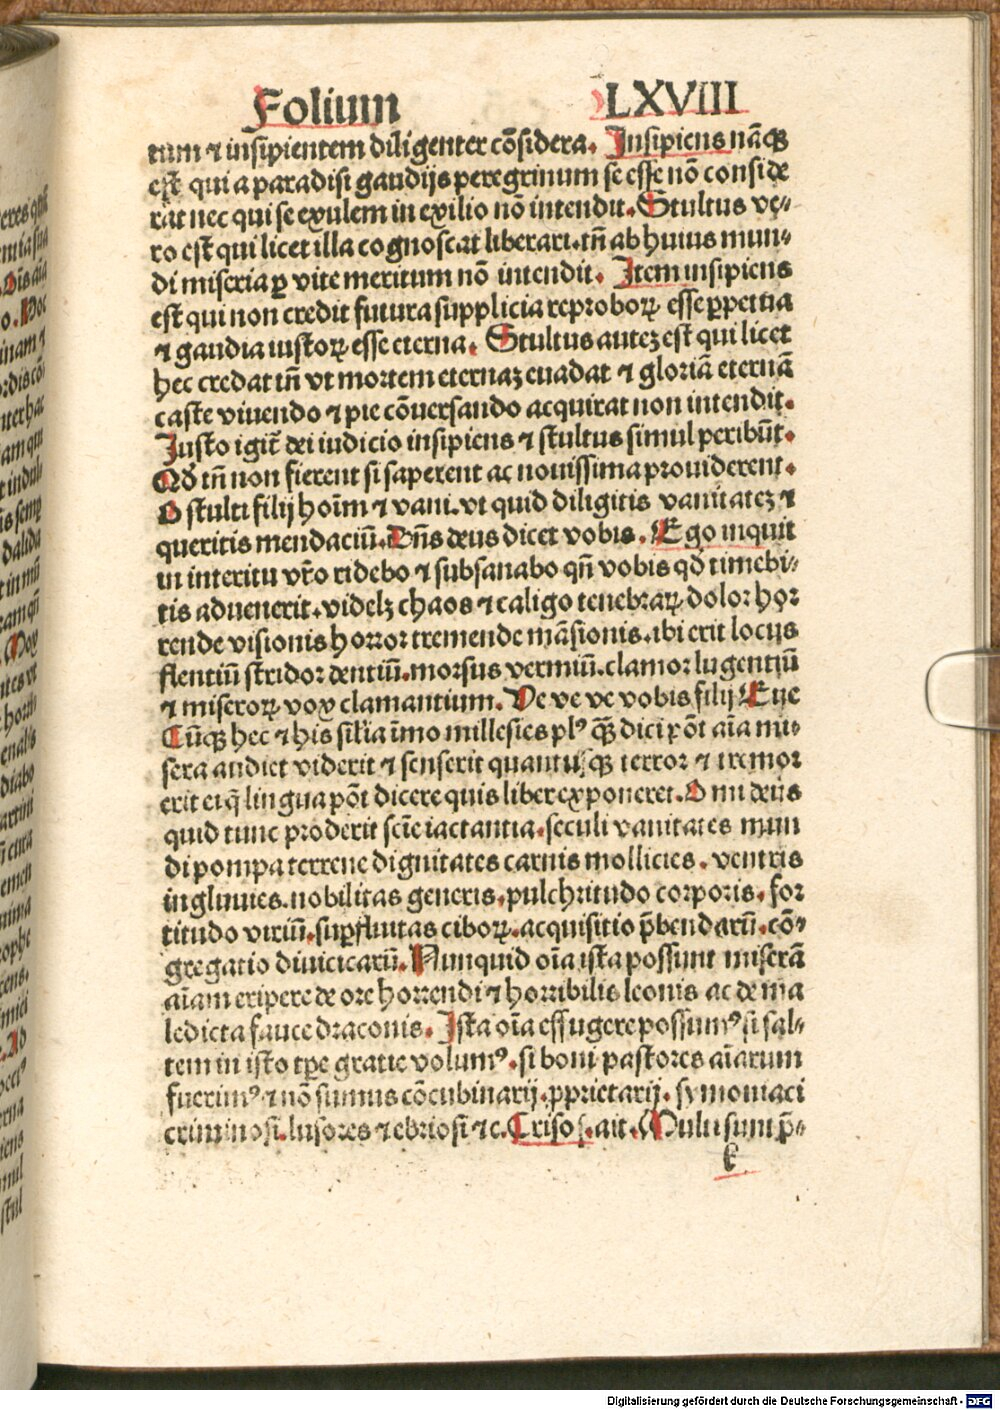 Folium LXVIII
tum ⁊ insipientem diligenter cōsidera. Insipiens nāqꝫ
est qui a paradisi gaudijs peregrinum se esse nō conside
rat nec qui se exulem in exilio nō intendit. Stultus ve⸗
ro est qui licet illa cognoscat liberari. tn̄ ab huius mun⸗
di miseria ꝑ vite meritum nō intendit. Item insipiens
est qui non credit futura supplicia reproboꝝ esse ꝑpetua
⁊ gaudia iustoꝝ esse eterna. Stultus auteꝫ est qui licet
hec credat tn̄ vt mortem eternaꝫ euadat ⁊ gloriā eternā
caste viuendo ⁊ pie cōuersando acquirat non intendit.
Justo igit̄ dei iudicio insipiens ⁊ stultus simul peribūt.
Qd̓ tn̄ non fierent si saperent ac nouissima prouiderent.
O stulti filij hoīm ⁊ vani. vt quid diligitis vanitateꝫ ⁊
queritis mendaciū. Dn̄s deus dicet vobis. Ego inquit
in interitu vr̄o ridebo ⁊ subsanabo qn̄ vobis qd̓ timebi⸗
tis aduenerit. videlꝫ chaos ⁊ caligo tenebraꝝ. dolor hor
rende visionis horror tremende māsionis. ibi erit locus
flentiū stridor dentiū. morsus vermiū. clamor lugentiū
⁊ miseroꝝ vox clamantium. Ve ve ve vobis filij Eue
Cūqꝫ hec ⁊ his sil̓ia īmo millesies plꝰ qꝫ dici pōt aīa mi⸗
sera audiet viderit ⁊ senserit quantusqꝫ terror ⁊ tremor
erit ei q̄ lingua pōt dicere quis liber exponeret. O mi deus
quid tunc proderit scīe iactantia. seculi vanitates mun
di pompa terrene dignitates carnis mollicies. ventris
ingluuies. nobilitas generis. pulchritudo corporis. for
titudo viriū. suꝑfluitas ciboꝝ. acquisitio p̄bendarū. cō⸗
gregatio diuiciarū. Nunquid oīa ista possunt miserā
aīam eripere de ore horrendi ⁊ horribilis leonis ac de ma
ledicta fauce draconis. Ista oīa effugere possumꝰ si sal⸗
tem in isto tp̄e gratie volumꝰ. si boni pastores aīarum
fuerimꝰ ⁊ nō sumus cōcubinarij. ꝓprietarij. symoniaci
criminosi. lusores ⁊ ebriosi ⁊c. Crisos. ait. Multi sunt p̄⸗
k
Digitalisierung gefördert durch die Deutsche Forschungsgemeinschaft - DFG